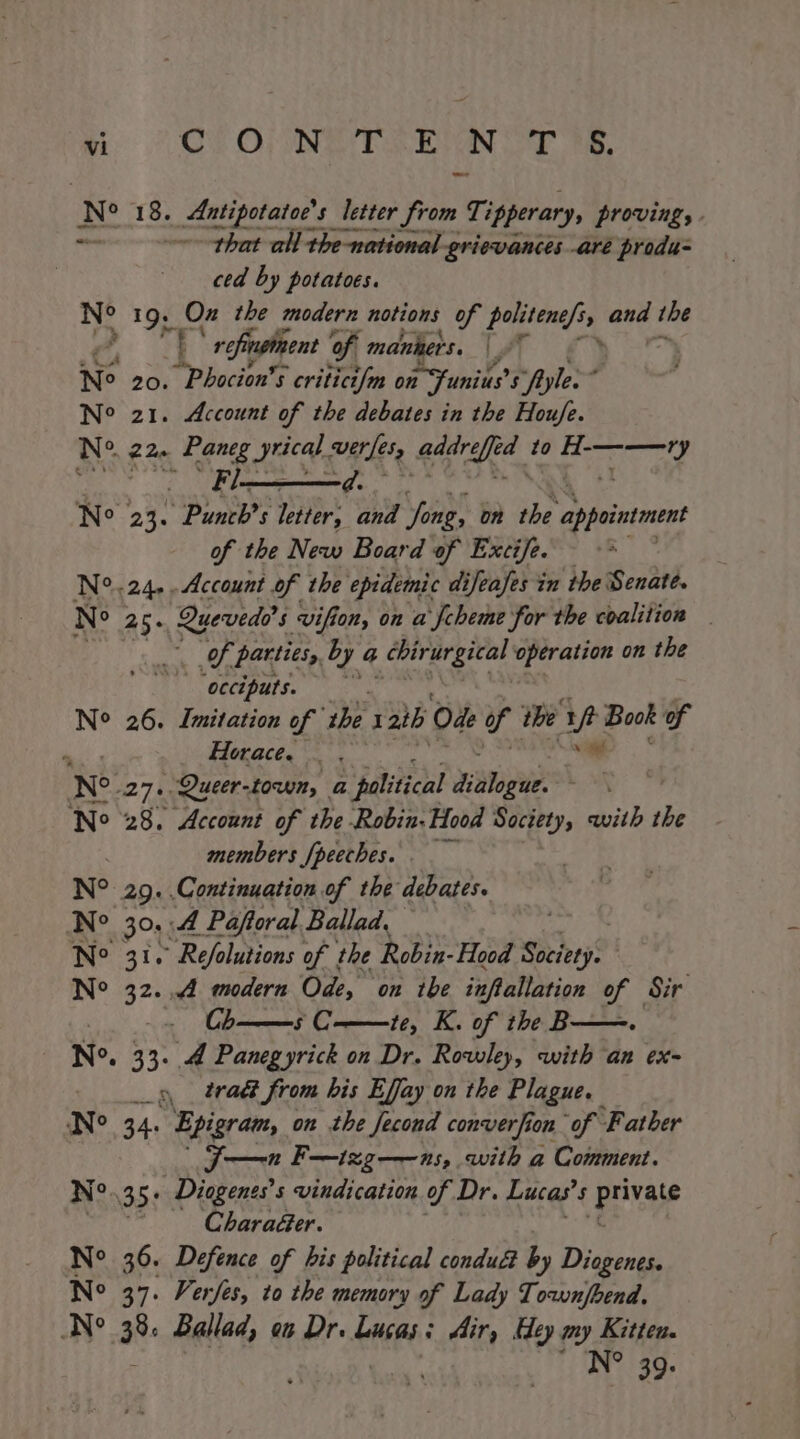 vi CONTENTS.
Nº 18. Antipotatoe's letter from Tipperary, proving,
that all the national grievances are produ-
ced by potatoes.
Nº 19. On the modern notions of politeneſs, and the
refinement of manners.
Nº 20. Phocion's criticiſm on Junius's ſtyle.
Nº 21. Account of the debates in the Houſe.
Nº 22. Panegyrical verſes, addreſſed to H-——ry
Fl———d.
Nº 23. Punch's letter, and ſong, on the appointment
of the New Board of Exciſe.
Nº 24. Account of the epidemic diſeaſes in the Senate.
Nº 25. Quevedo's viſion, on a ſcheme for the coalition
of parties, by a chirurgical operation on the
occiputs.
Nº 26. Imitation of the 12th Ode of the 1ſt Book of
Horace.
Nº 27. Queer-town, a political dialogue.
Nº 28. Account of the Robin-Hood Society, with the
members ſpeeches.
Nº 29. Continuation of the debates.
Nº 30. A Paſtoral Ballad.
Nº 31. Reſolutions of the Robin-Hood Society.
Nº 32. A modern Ode, on the inſtallation of Sir
Ch——s C——te, K. of the B——.
Nº. 33. A Panegyrick on Dr. Rowley, with an ex-
tract from his Eſſay on the Plague.
Nº 34. Epigram, on the ſecond converſion of Father
J——n F—txg——ns, with a Comment.
Nº 35. Diogenes's vindication of Dr. Lucas's private
Character.
Nº 36. Defence of his political conduct by Diogenes.
Nº 37. Verſes, to the memory of Lady Townſhend.
Nº 38. Ballad, on Dr. Lucas: Air, Hey my Kitten.
Nº 39.